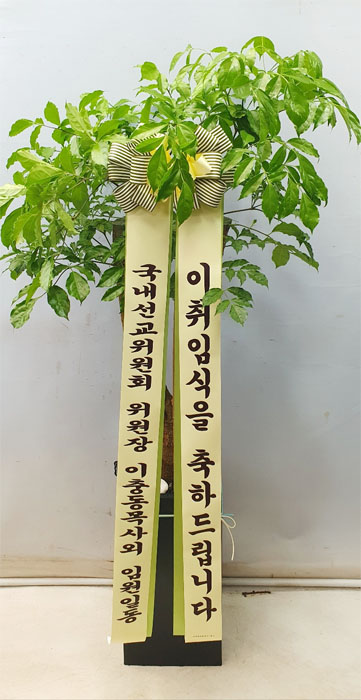 이취임식을 축하드립니다
국내선교위원회 위원장 이충동목사외 임원일동